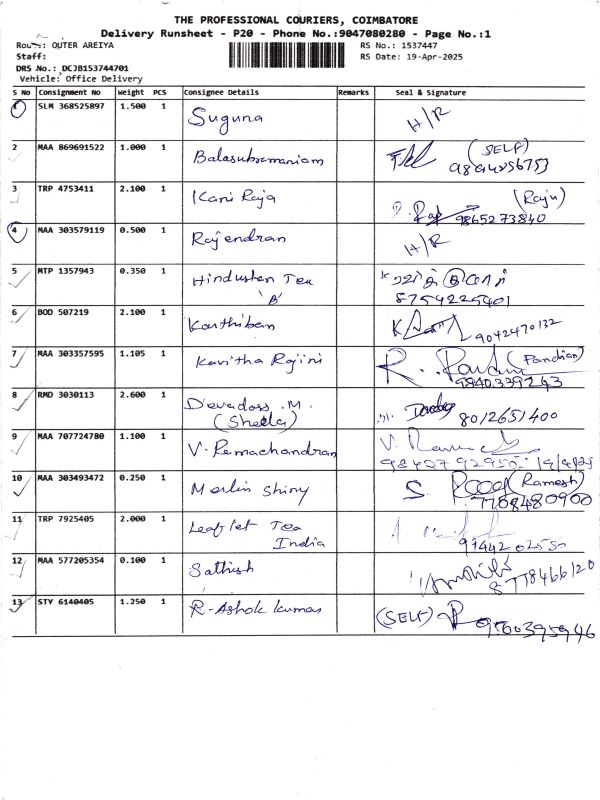 THE PROFESSIONAL COURIERS, COIMBATORE
Delivery Runsheet - P20 - Phone No.:9047080280 - Page No.:1
Route: OUTER AREIYA RS No.: 1537447
Staff: RS Date: 19-Apr-2025
DRS No.: DCJB153744701
Vehicle: Office Delivery
S No Consignment No Weight PCS Consignee Details Remarks Seal & Signature
1 SLM 368525897 1.500 1 Suguna H/R
2 MAA 869691522 1.000 1 Balasubramaniam (SELF)
3 TRP 4753411 2.100 1 Kani Raja (Raju)
9865273840
4 MAA 303579119 0.500 1 Rajendran H/R
5 MTP 1357943 0.350 1 Hindustan Tea
'B' 8754225401
6 BOD 507219 2.100 1 Karthiban 9042470132
7 MAA 303357595 1.105 1 Kavitha Rajini (Pandian)
9840339243
8 RMD 3030113 2.600 1 Devadoss .M.
(Sheela) 8012651400
9 MAA 707724780 1.100 1 V. Ramachandran
98407 92950 19/4/25
10 MAA 303493472 0.250 1 Merlin Shiny (Ramesh)
7708480900
11 TRP 7925405 2.000 1 Leaflet Tea
India 99442 02550
12 MAA 577205354 0.100 1 Sathish
8778466120
13 STV 6140405 1.250 1 R. Ashok kumar (SELF)